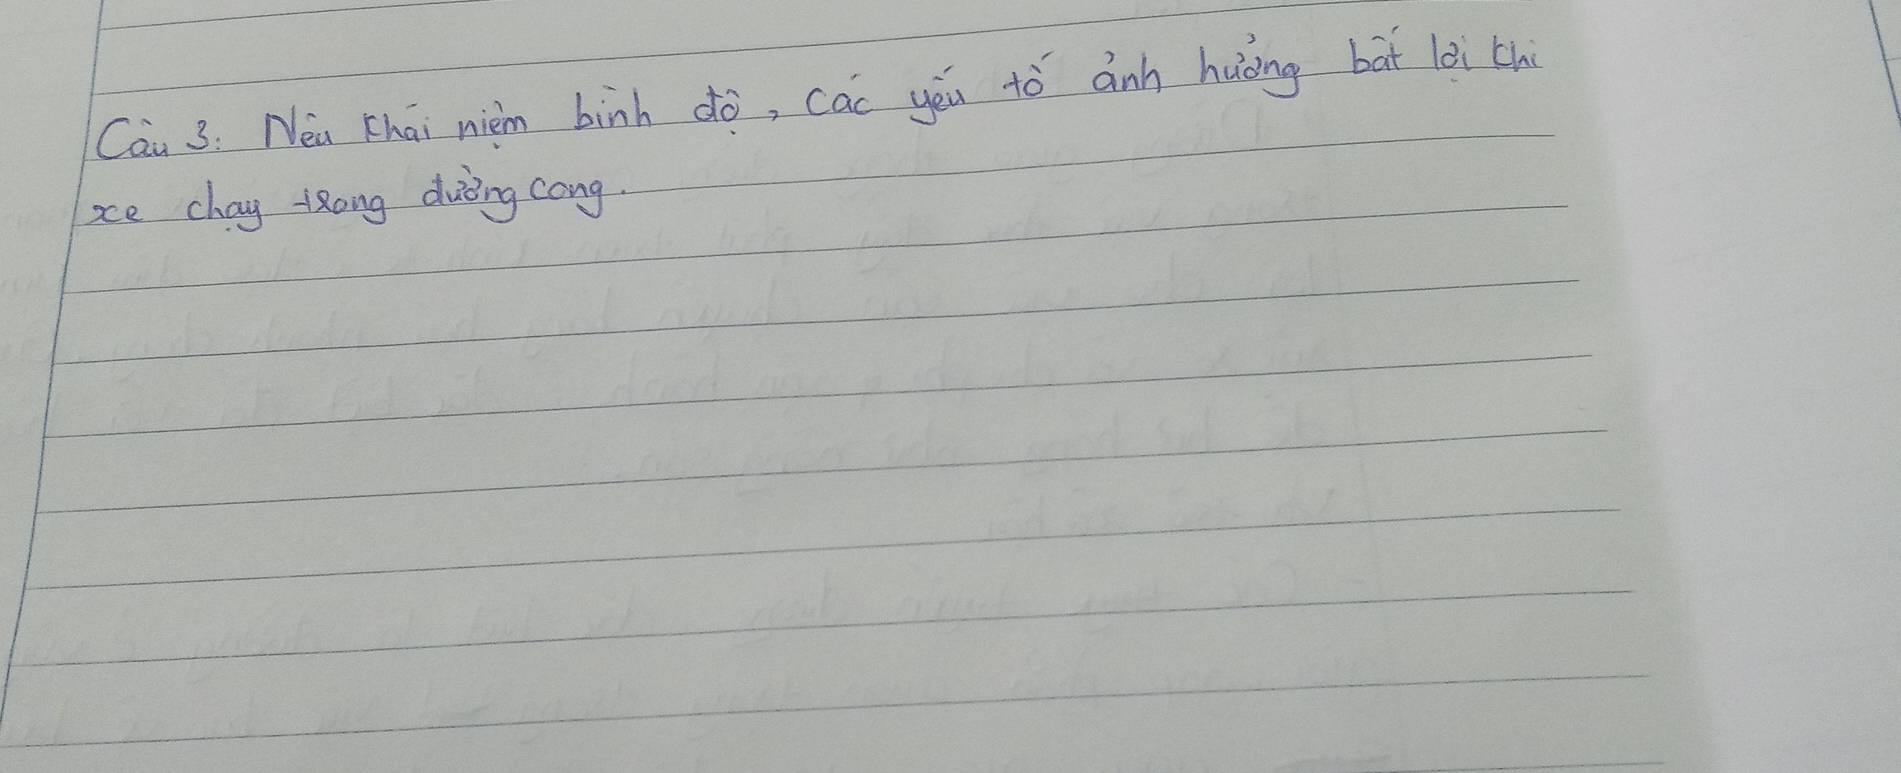 Câu 3: Nêu khái niệm bình độ, các yếu tố ảnh hưởng bất lợi khi
xe chạy trong đường cong.